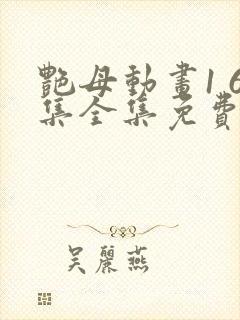 艷母動畫1 6
集全集免費
吴麗燕